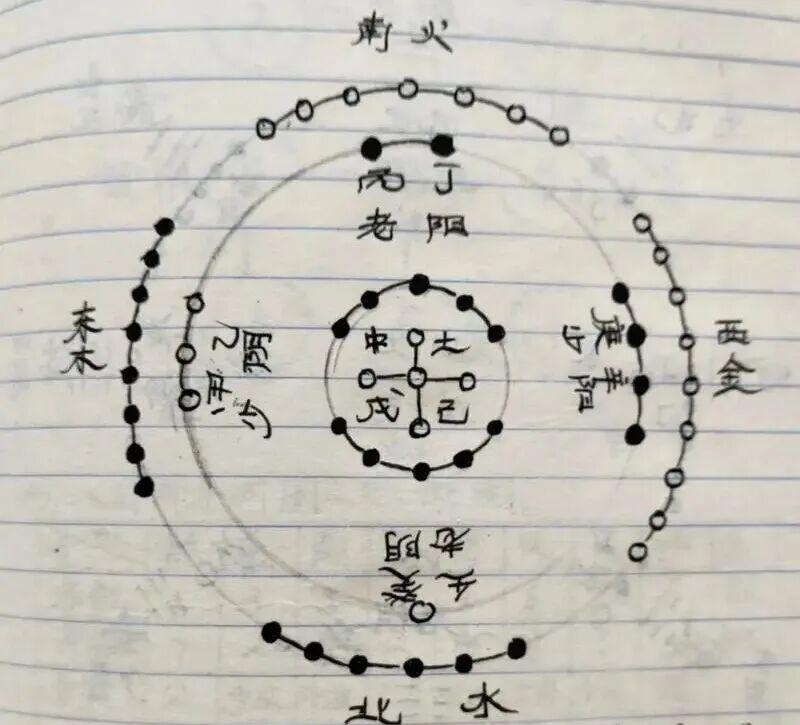 南火
丙丁
老阳
东木
甲乙
少阴
中土
戊己
庚辛
少阳
西金
老阴
壬癸
北水